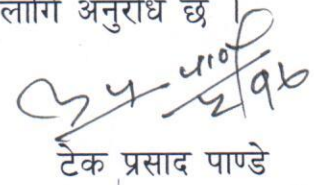 लागि अनुरोध छ ।
टेक प्रसाद पाण्डे